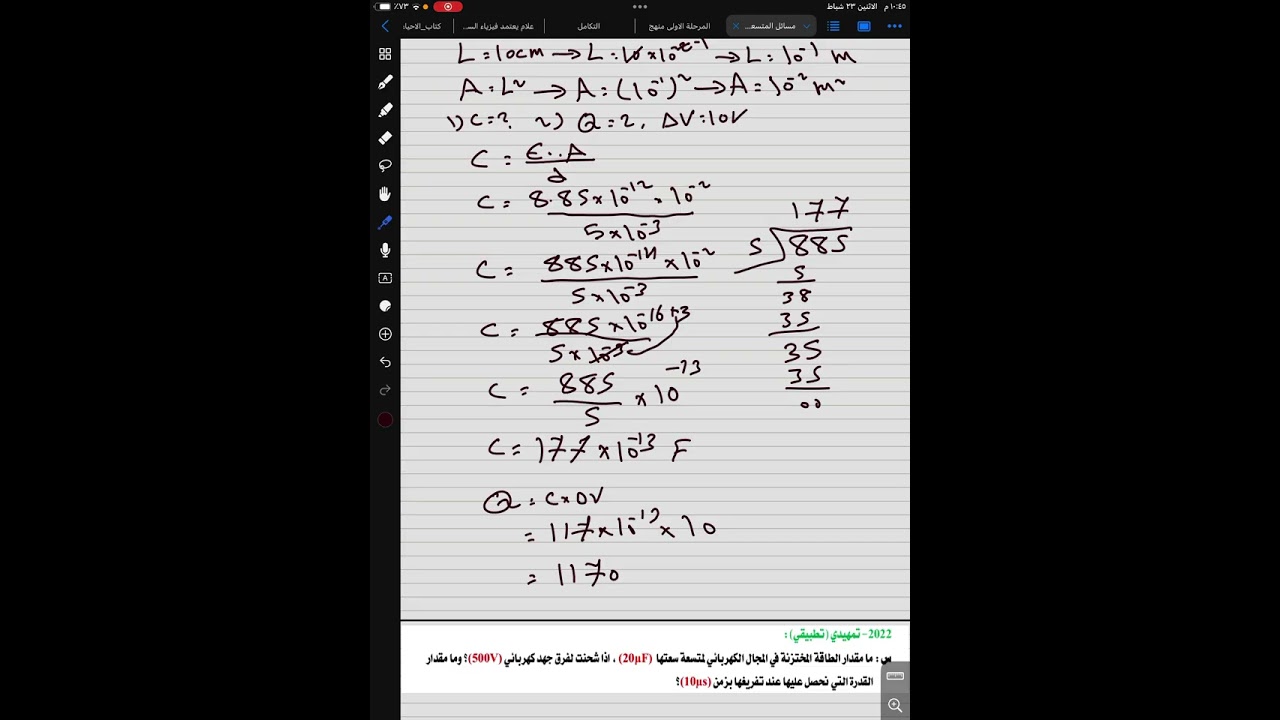 ١٠:٤٥ م الاثنين ٢٣ شباط
٧٣٪
مسائل المتسعـ...
المرحلة الاولى منهج
التكامل
علام يعتمد فيزياء السـ...
كتاب_الاحياء
L = 10cm → L = 10×10⁻²⁻¹ → L = 10⁻¹ m
A = L² → A = (10⁻¹)² → A = 10⁻² m²
1) C = ?. 2) Q = ?, ΔV = 10V
C = ε∘.A / d
C = 8.85×10⁻¹² × 10⁻² / 5×10⁻³
C = 885×10⁻¹⁴ × 10⁻² / 5×10⁻³
C = 885×10⁻¹⁶⁺³ / 5×10⁻³
C = 885 / 5 × 10⁻¹³
C = 177×10⁻¹³ F
177
5 885
5
38
35
35
35
00
Q = C×ΔV
= 117×10⁻¹³ × 10
= 1170
2022- تمهيدي (تطبيقي) :
س : ما مقدار الطاقة المختزنة في المجال الكهربائي لمتسعة سعتها (20μF) ، اذا شحنت لفرق جهد كهربائي (500V)؟ وما مقدار
القدرة التي نحصل عليها عند تفريغها بزمن (10μs)؟